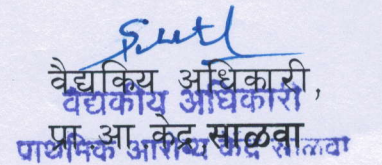 वैद्यकिय अधिकारी,
वैद्यकीय अधिकारी
प्रा. आ. केंद्र साळवा
प्राथमिक आरोग्य केंद्र साळवा